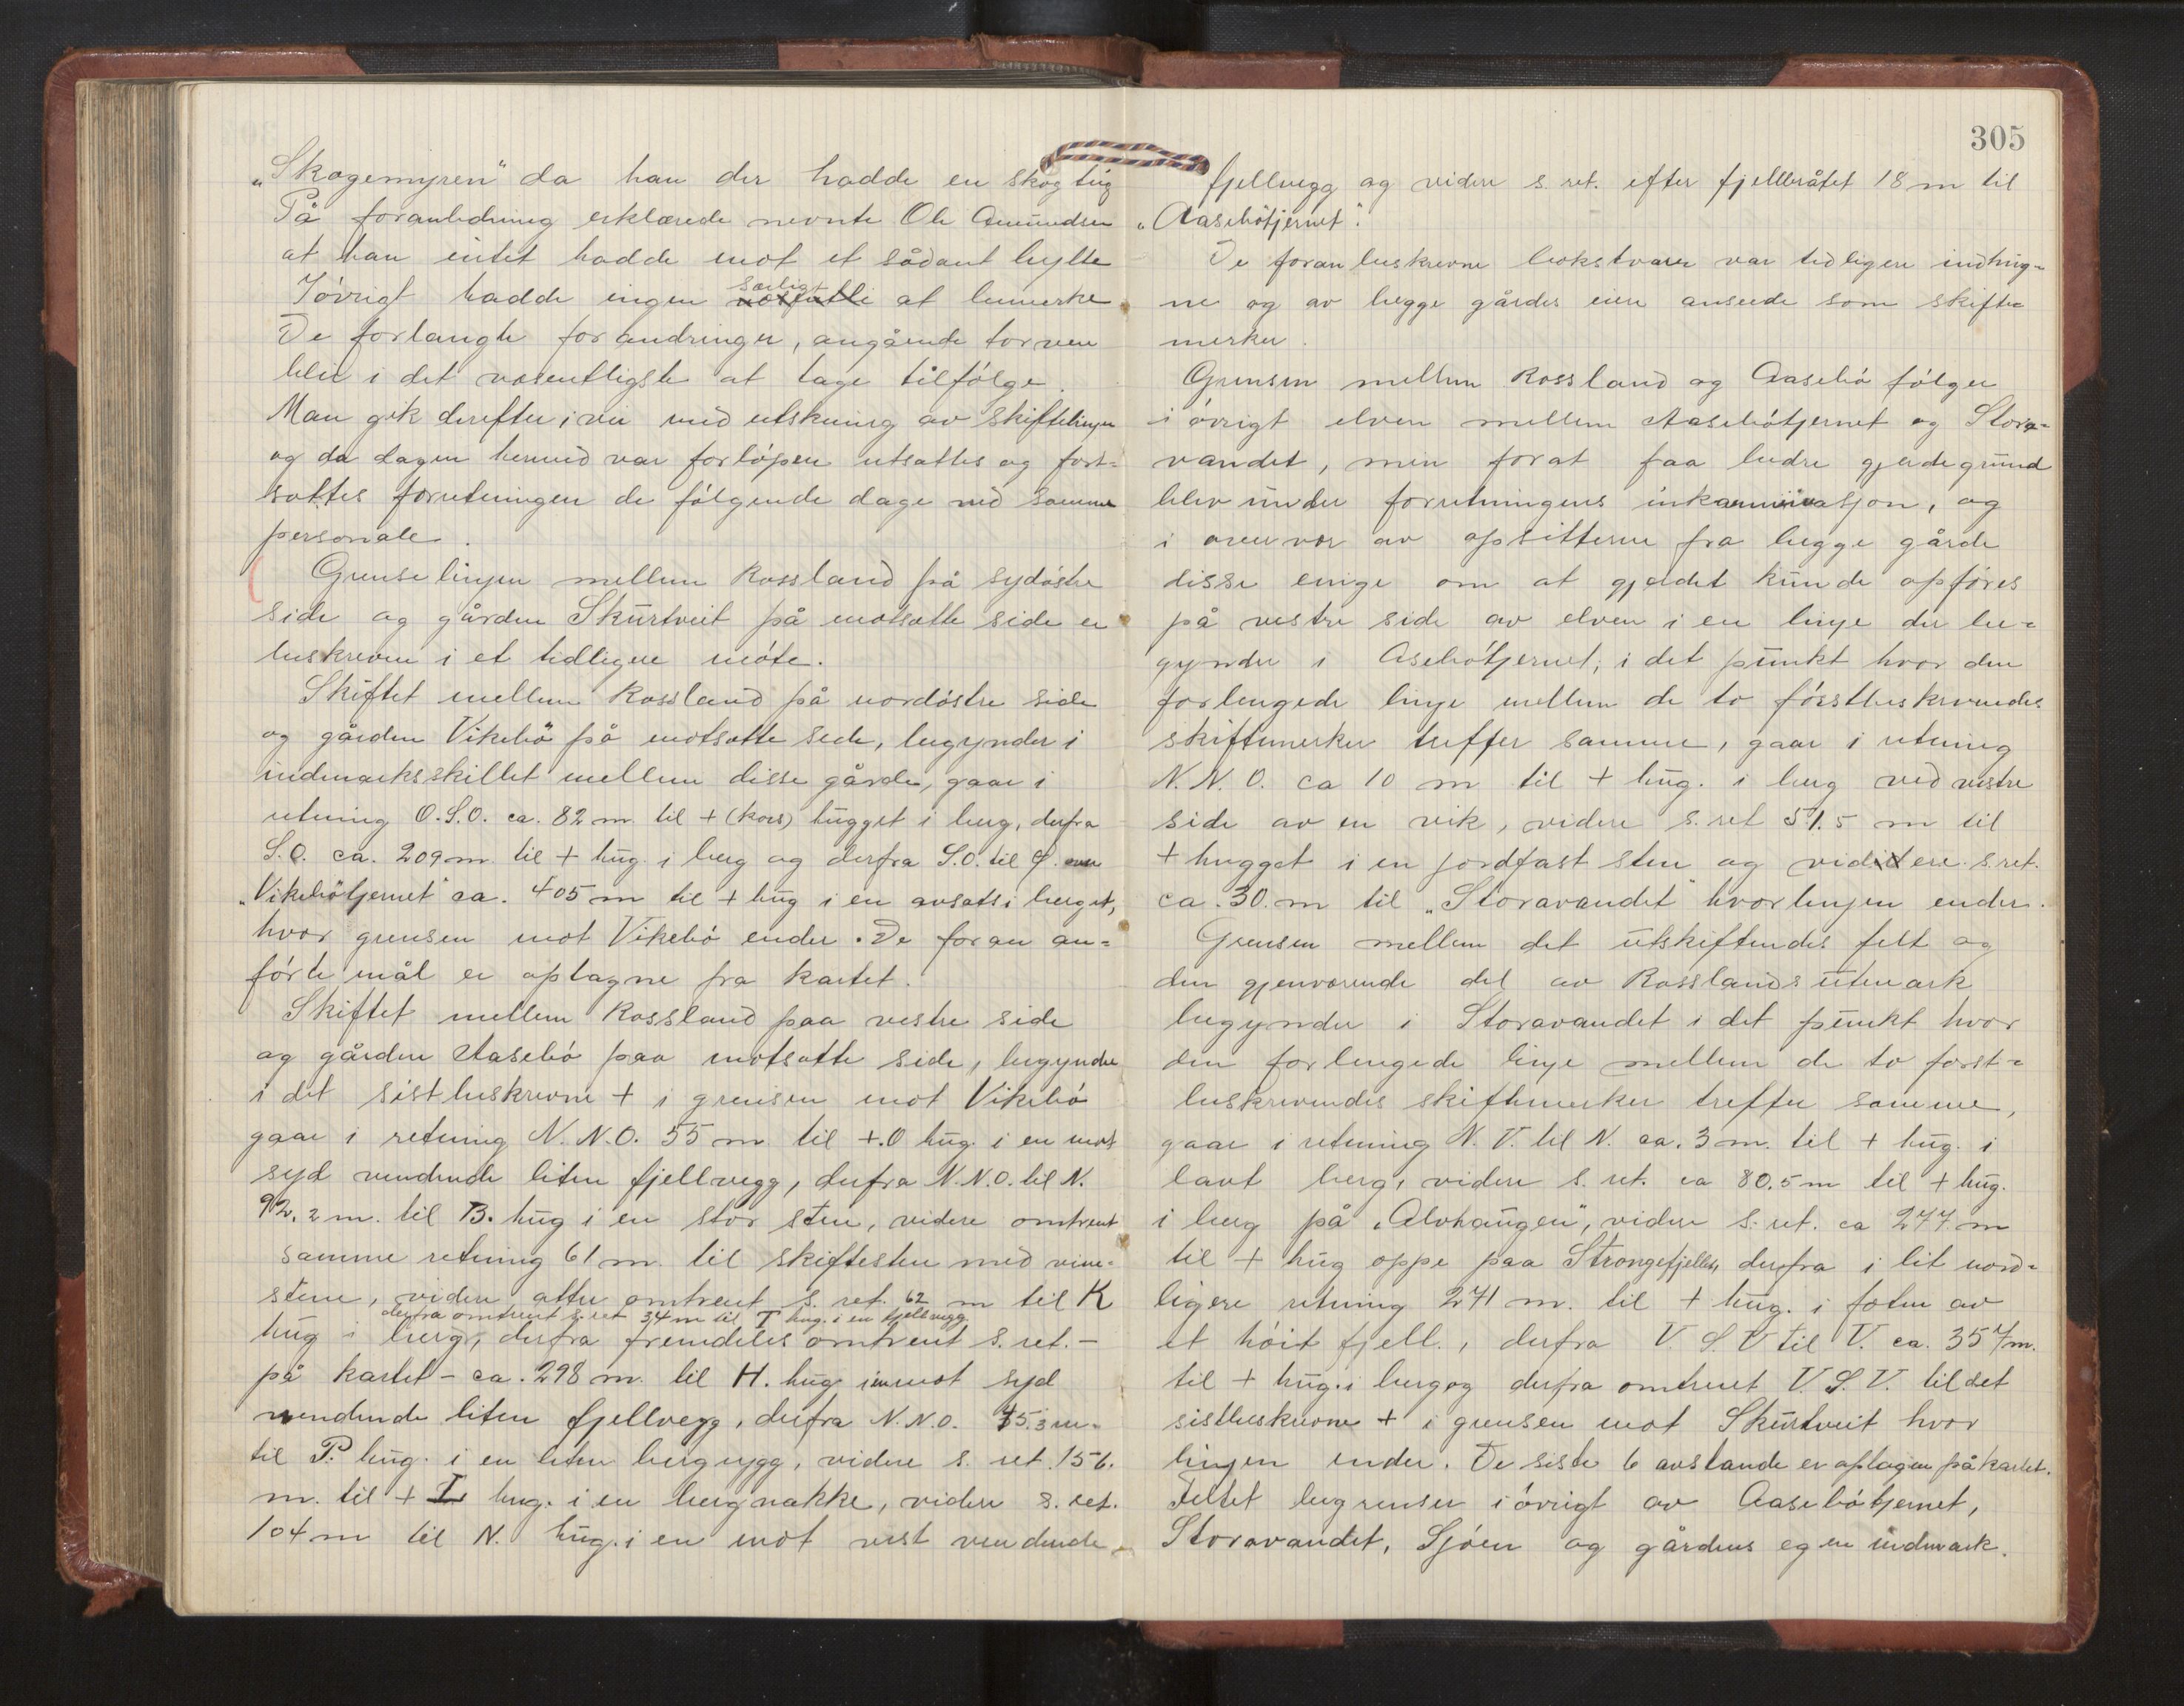 „Skogemyren" da han der hadde en skogteig
På foranledning erklærede nevnte Ole Amundsen
at han intet hadde mot et sådant bytte
Iøvrigt hadde ingen særligt at bemerke
De forlangte forandringer, angående torven
blir i det væsentligste at tage tilfølge.
Man gik derefter ivei med utskuing av skiftelinjer
og da dagen hermed var forløpen utsattes og fort-
sattes forretningen de følgende dage med samme
personale.
Grenselinjen mellem Rossland på sydøstre
side og gården Skurtveit på motsatte side er
beskreven i et tidligere møte.
Skiftet mellem Rossland på nordøstre side
og gården Vikebø på motsatte side, begynder i
indmarksskillet mellem disse gårde, gaar i
retning O.S.O. ca. 82 m. til + (kors) hugget i berg, derfra
S.O. ca. 209 m. til + hug. i berg og derfra S.O. til O. over
„Vikebøtjernet" ca. 405 m til + hug i en avsats i berget,
hvor grensen mot Vikebø ender. De foran an-
førte mål er optagne fra kartet.
Skiftet mellem Rossland paa vestre side
og gården Aasebø paa motsatte side, begynder
i det sistbeskrevne + i grensen mot Vikebø
gaar i retning N.N.O. 55 m. til +.O hug. i en mot
syd vendende liten fjellvegg, derfra N.N.O. til N.
92.2 m. til B. hug i en stor sten, videre omtrent
samme retning 61 m. til skiftesten med vine-
stene, videre atter omtrent s. ret. 62 m til K
derfra omtrent s. ret 34 m til T hug. i en fjellvegg
hug i berg, derfra fremdeles omtrent s. ret. -
på kartet - ca. 298 m. til H. hug. i en mot syd
vendende liten fjellvegg, derfra N.N.O. 45.3 m.
til P. hug. i en liten bergrygg, videre s. ret. 156.
m. til + I hug. i en bergnakke, videre s. ret.
104 m til N. hug. i en mot vest vendende
305
fjellvegg og videre s. ret. efter fjellbråtet 18 m til
„Aasebøtjernet".
De foran beskrevne bokstaver var tidligere indhug-
ne og av begge gårdes eiere anseede som skifte
merker.
Grensen mellem Rossland og Aasebø følger
i øvrigt elven mellem Aasebøtjernet og Stora-
vandet, men forat faa bedre gjerdegrund
blev under forretningens inkaminasjon, og
i overvær av opsitterne fra begge gårde
disse enige om at gjerdet kunde opføres
på vestre side av elven i en linje der be-
gynder i Asebøtjernet, i det punkt hvor den
forlengede linje mellem de to førstbeskrevendes
skiftemerker treffer samme, gaar i retning
N.N.O. ca 10 m til + hug. i berg ved vestre
side av en vik, videre s. ret 51.5 m til
+ hugget i en jordfast sten og videre s. ret.
ca. 30. m til „Storavandet" hvor linjen ender.
Grensen mellem det utskiftendes felt og
den gjenværende del av Rosslands utmark
begynder i Storavandet i det punkt hvor
den forlengede linje mellem de to først-
beskrevendes skiftemerker treffer samme,
gaar i retning N.V. til N. ca. 3 m. til + hug. i
lavt berg, videre s. ret. ca 80.5 m til + hug.
i berg på „Alvhaugen", videre s. ret. ca 277 m
til + hug oppe paa Strongefjellet, derfra i lit nord-
ligere retning 271 m. til + hug. i foten av
et høit fjell., derfra V.S.V til V. ca. 357 m.
til + hug. i berg og derfra omtrent V.S.V. til det
sistbeskrevne + i grensen mot Skurtveit hvor
linjen ender. De siste 6 avstande er optagen på kartet.
Feltet begrenses iøvrigt av Aasebøtjernet,
Storavandet, Sjøen og gårdens egen indmark.